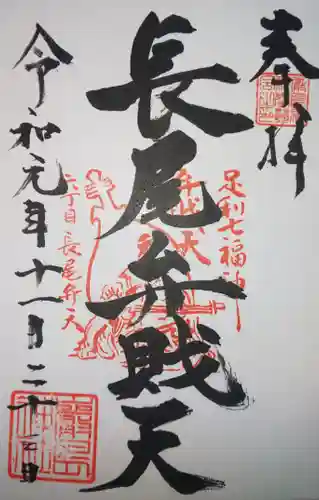 奉拝
足利七福神
長尾弁賎天
六丁目長尾弁天
令和元年十一月二十三日